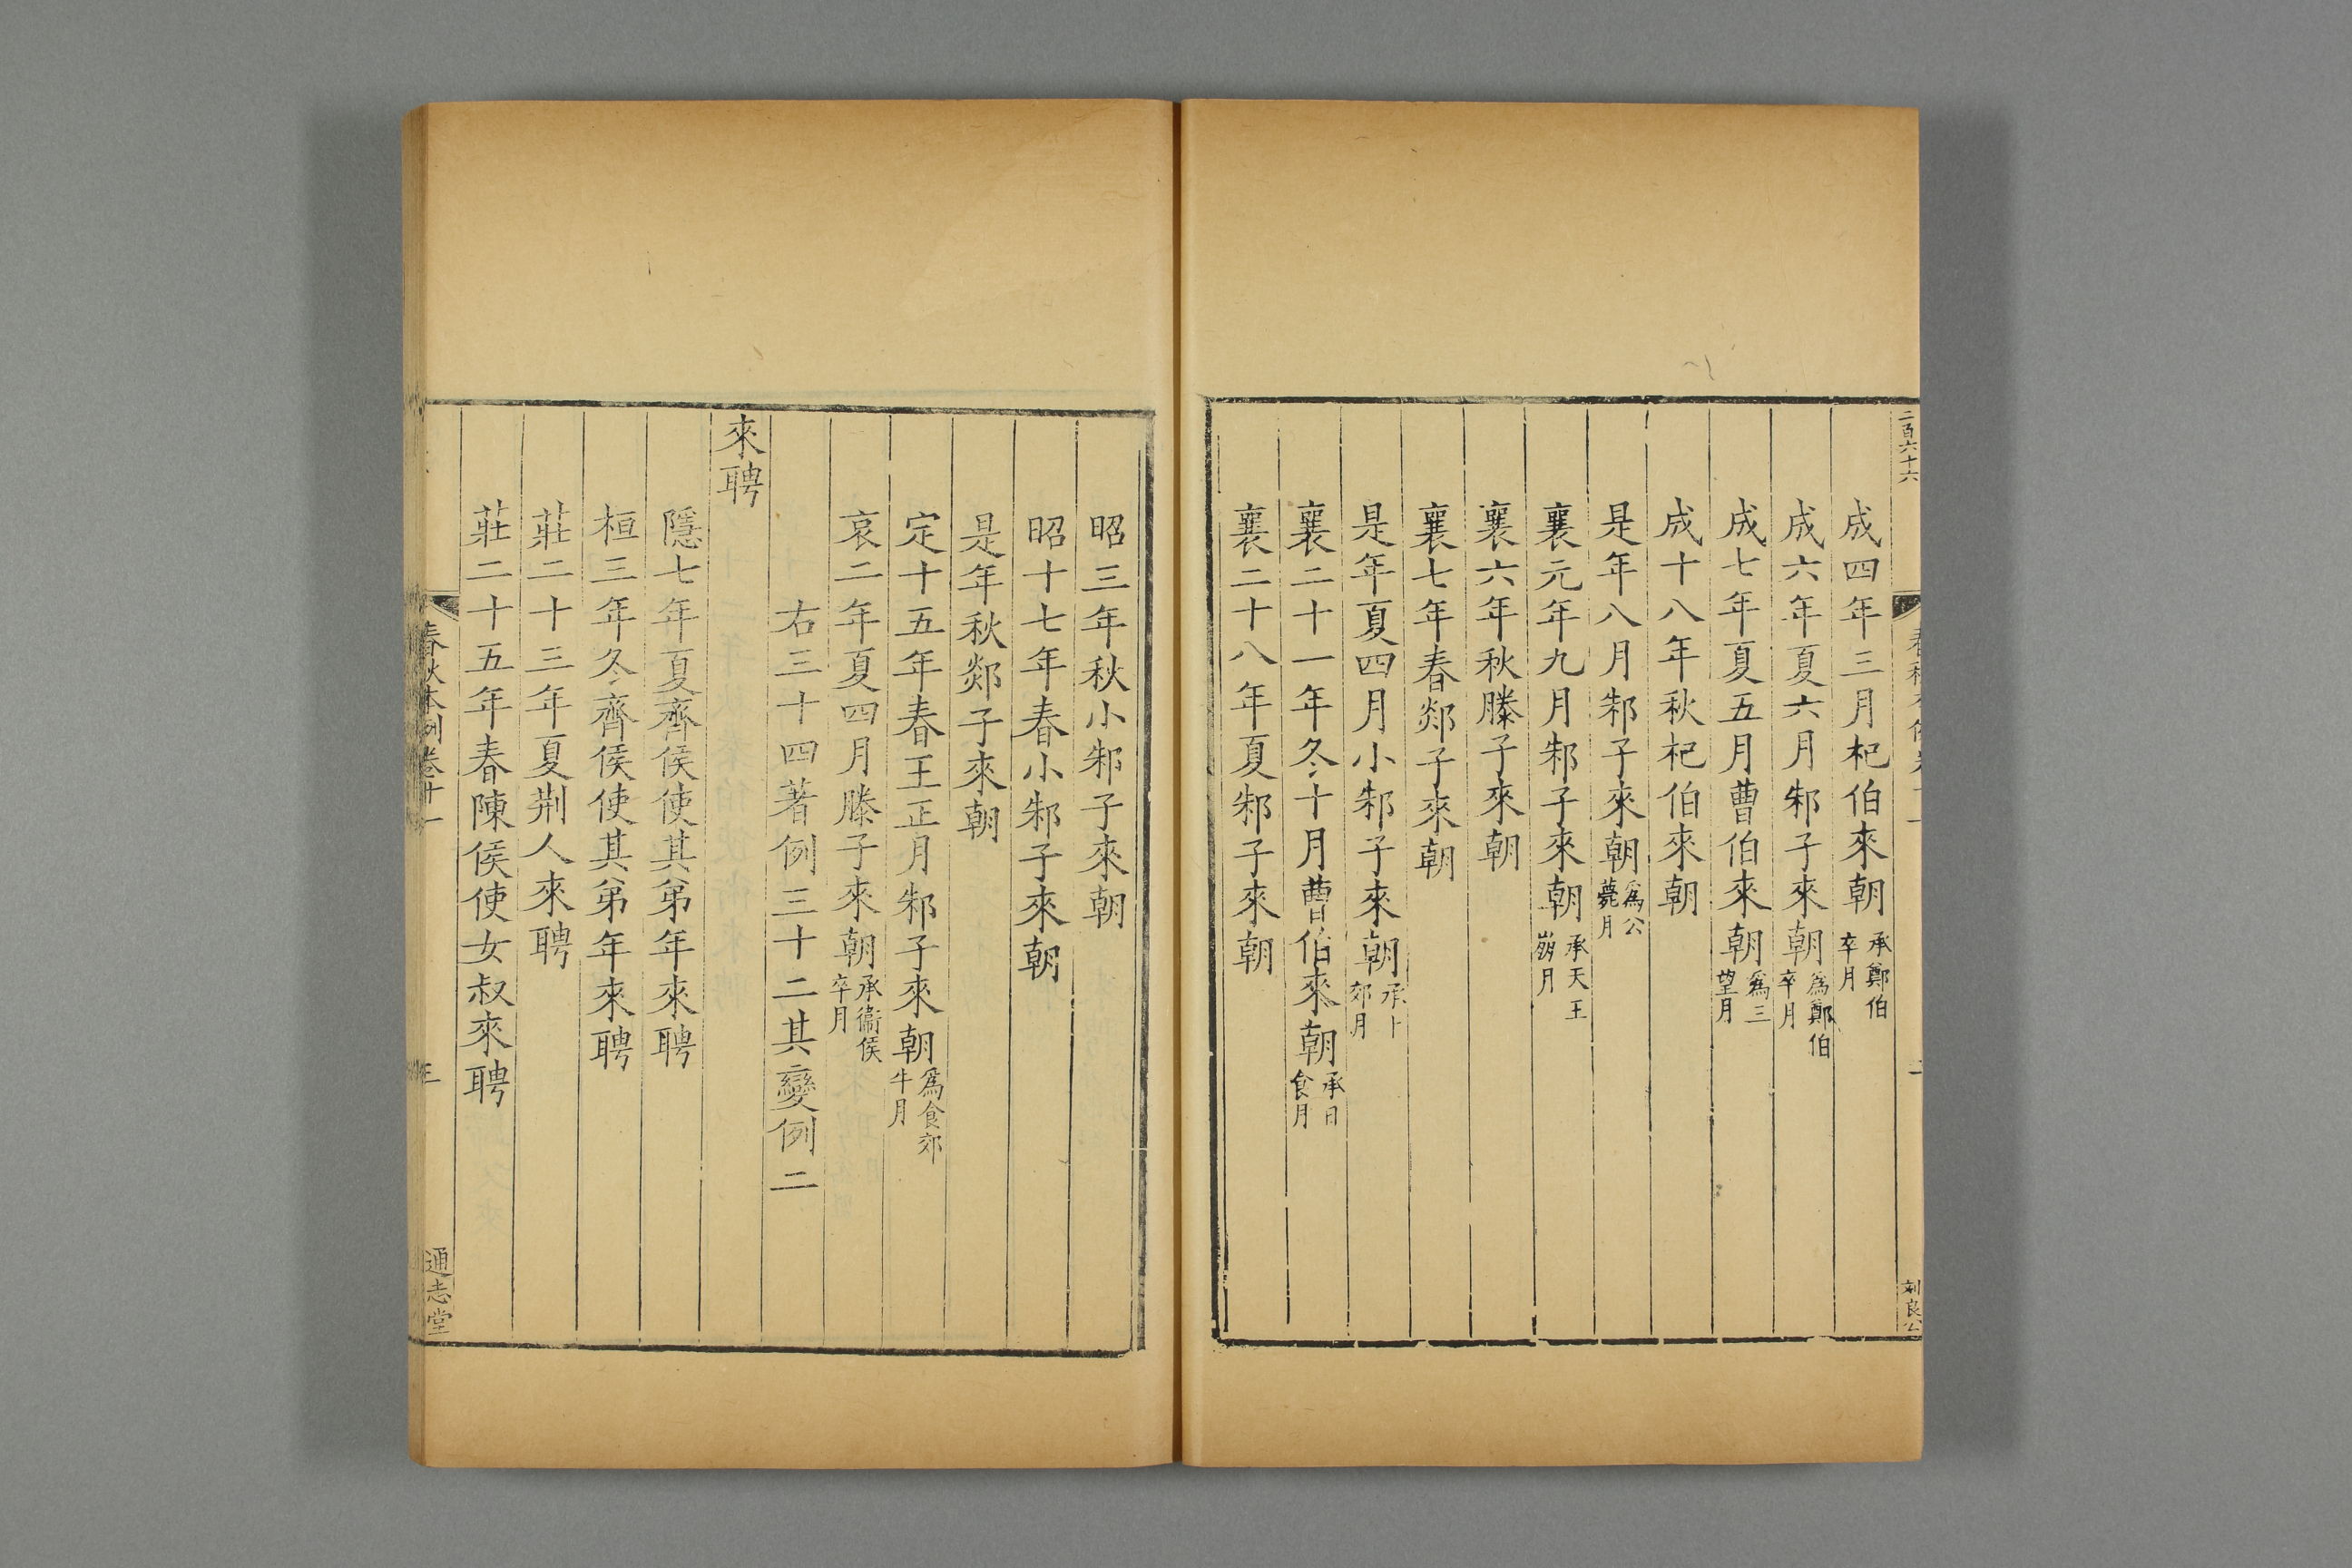 二百六十六
成四年三月杞伯來朝承鄭伯卒月
成六年夏六月邾子來朝為鄭伯卒月
成七年夏五月曹伯來朝為三望月
成十八年秋杞伯來朝
是年八月邾子來朝為公薨月
襄元年九月邾子來朝承天王崩月
襄六年秋滕子來朝
襄七年春郯子來朝
是年夏四月小邾子來朝承卜郊月
襄二十一年冬十月曹伯來朝承日食月
襄二十八年夏邾子來朝
昭三年秋小邾子來朝
昭十七年春小邾子來朝
是年秋郯子來朝
定十五年春王正月邾子來朝為食郊牛月
哀二年夏四月滕子來朝承衞侯卒月
右三十四著例三十二其變例二
來聘
隱七年夏齊侯使其弟年來聘
桓三年冬齊侯使其弟年來聘
莊二十三年夏荆人來聘
莊二十五年春陳侯使女叔來聘
春秋本例卷十一
三
通志堂